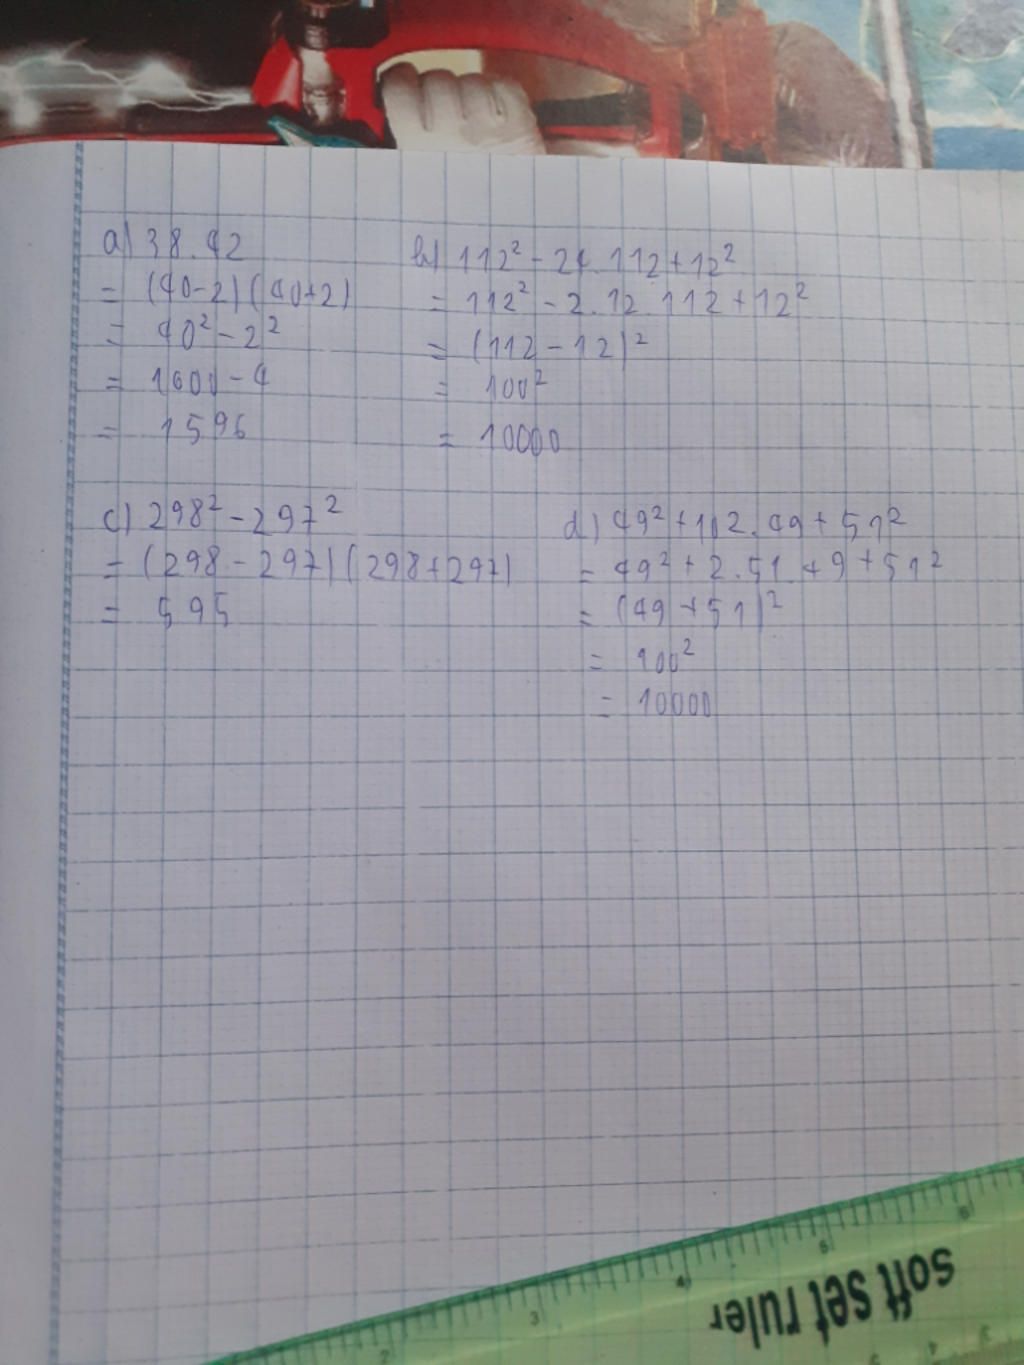 a) 38.42
= (40-2)(40+2)
= 40² - 2²
= 1600 - 4
= 1596
b) 112² - 24.112 + 12²
= 112² - 2.12.112 + 12²
= (112 - 12)²
= 100²
= 10000
c) 298² - 297²
= (298 - 297)(298 + 297)
= 595
d) 49² + 102.49 + 51²
= 49² + 2.51.49 + 51²
= (49 + 51)²
= 100²
= 10000
6
5
4
3
2
soft set ruler